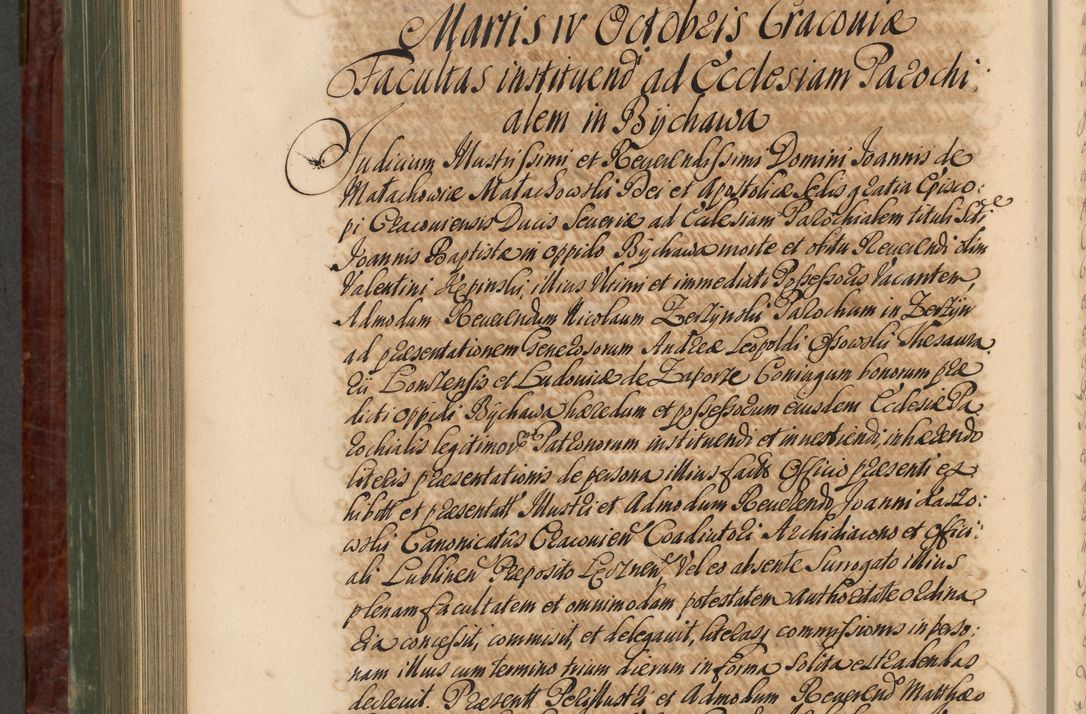 Martis IV Octobris Cracoviæ
Facultas instituend ad Ecclesiam Parochi
alem in Bychawa
Iudicium Illustrissimi et Reverendissimi Domini Ioannis de
Małachowice Małachowski Dei et Apostolicæ Sedis gratia Episco:
pi Cracoviensis Ducis Severiæ ad Ecclesiam Parochialem tituli Scti
Joannis Baptistæ in oppido Bychawa morte et obitu Reverendi olim
Valentini Kępinski, illius Ultimi et immediati Possessoris Vacantem,
Admodum Reverendum Nicolaum Zerzynski Parochum in Zerzyn
ad præsentationem Generosorum Andreæ Leopoldi Ossowski Thesaura
rii et Ludovicæ de Zaporze Coniugum bonorum præ
dicti oppidi Bychawa hæredum et possessorum eiusdem Ecclesiæ Pa
rochialis legitimor Patronorum instituendi et investiendi, inhærendo
literis præsentationis de persona illius factis Officio præsenti ex
hibitt et præsentatt Illustri et Admodum Reverendo Joanni
wski Canonicatus Cracovien Coadiutori Archidiacono et Offici:
ali Lublinen Præposito Vel eo absente Surrogato illius
plenam facultatem et omnimodam potestatem Authoritate ordina
ria concessit, commisit, et delegavit, literasq commissionis in perso:
nam illius cum termino trium dierum in forma solita extradendas
decrevit. Præsentt Perillustri et Admodum Reverend Matthæo